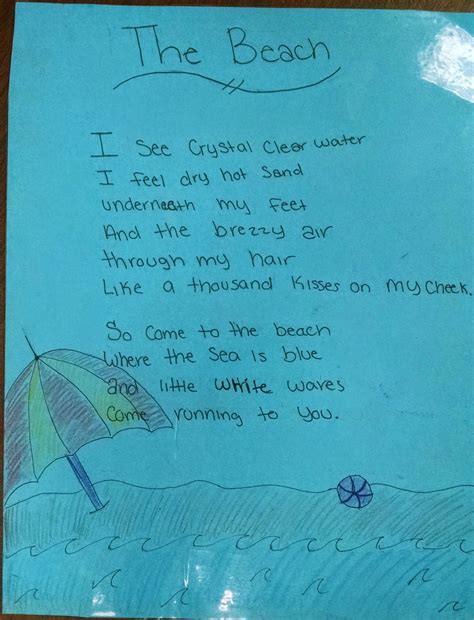 The Beach
I see Crystal Clear water
I feel dry hot Sand
underneath my feet
And the brezzy air
through my hair
Like a thousand Kisses on my Cheek.
So Come to the beach
Where the Sea is blue
and little white waves
Come running to you.